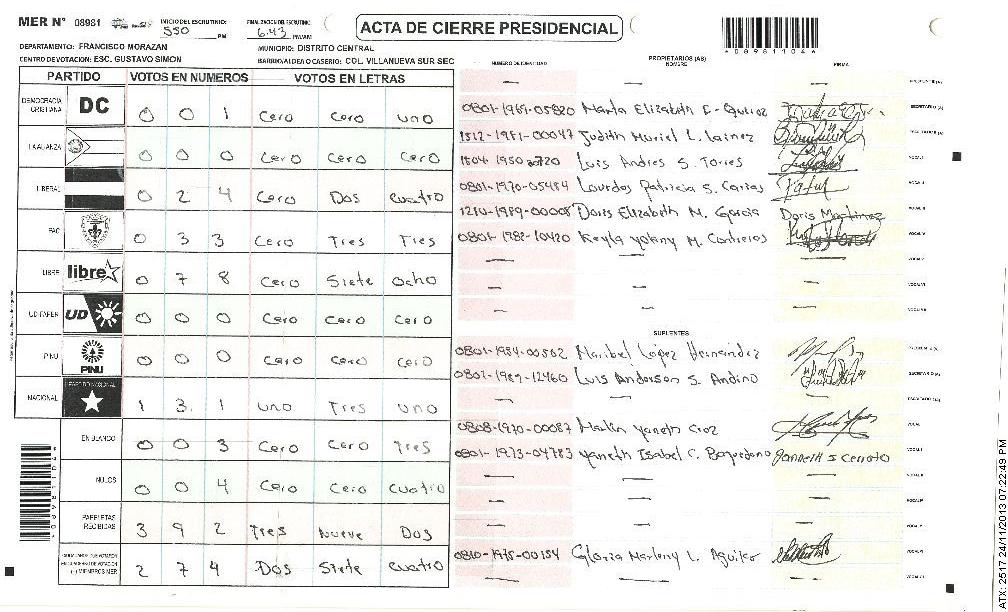 MER N° 08981 INICIO DEL ESCRUTINIO: 550 PM FINALIZACION DEL ESCRUTINIO: 6:43 PM/AM
ACTA DE CIERRE PRESIDENCIAL
*089811046*
DEPARTAMENTO: FRANCISCO MORAZAN MUNICIPIO: DISTRITO CENTRAL
CENTRO DE VOTACION: ESC. GUSTAVO SIMON BARRIO/ALDEA O CASERIO: COL. VILLANUEVA SUR SEC
PARTIDO VOTOS EN NUMEROS VOTOS EN LETRAS
DEMOCRACIA CRISTIANA DC 0 0 1 Cero Cero uno
LA ALIANZA 0 0 0 Cero Cero Cero
LIBERAL 0 2 4 Cero Dos cuatro
PAC 0 3 3 Cero Tres Tres
LIBRE libre 0 7 8 Cero Siete ocho
UD FAPER UD 0 0 0 Cero Cero Cero
PINU PINU 0 0 0 Cero Cero Cero
NACIONAL PARTIDO NACIONAL 1 3 1 uno Tres uno
EN BLANCO 0 0 3 Cero Cero Tres
NULOS 0 0 4 Cero Cero cuatro
PAPELETAS RECIBIDAS 3 9 2 Tres Nueve Dos
CIUDADANOS QUE VOTARON EN CUADERNO DE VOTACION (+) MIEMBROS MER 2 7 4 Dos Siete cuatro
NUMERO DE IDENTIDAD PROPIETARIOS (AS) NOMBRE FIRMA
PRESIDENTE (A)
0801-1969-05820 Marta Elizabeth SECRETARIO (A)
1512-1981-00047 Judith Muriel L. Lainez ESCRUTADOR (A)
1504 1950 Luis Andres S. Torres VOCAL I
0801-1970-05454 Lourdes Patricia S. Carias VOCAL II
1210-1989-00008 Doris Elizabeth M. Garcia Doris Martinez VOCAL III
0801-1982-10420 Keyla Yolany M. Contreras VOCAL IV
VOCAL V
VOCAL VI
VOCAL VII
SUPLENTES
0801-1984-00502 Maribel Lopez Hernandez PRESIDENTE (A)
0801-1989-12460 Luis Anderson S. Andino SECRETARIO (A)
ESCRUTADOR (A)
0808-1970-00087 Yaneth Cruz VOCAL I
0801-1973-04783 Yaneth Isabel C. VOCAL II
VOCAL III
VOCAL IV
VOCAL V
0810-1975-00154 Gloria Marleny L. Aguilar VOCAL VI
VOCAL VII
ATX: 2517 24/11/2013 07:22:49 PM